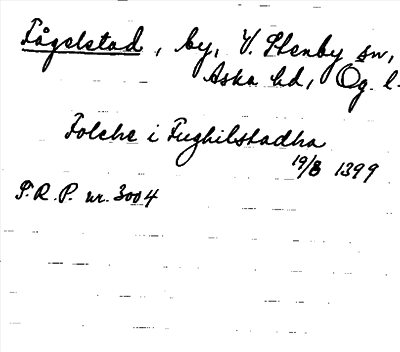 Fågelstad, by, V. Stenby sn,
Aska hd, Ög. l.
Folche i Fughilstadha
19/8 1399
P.R.P. nr. 3004